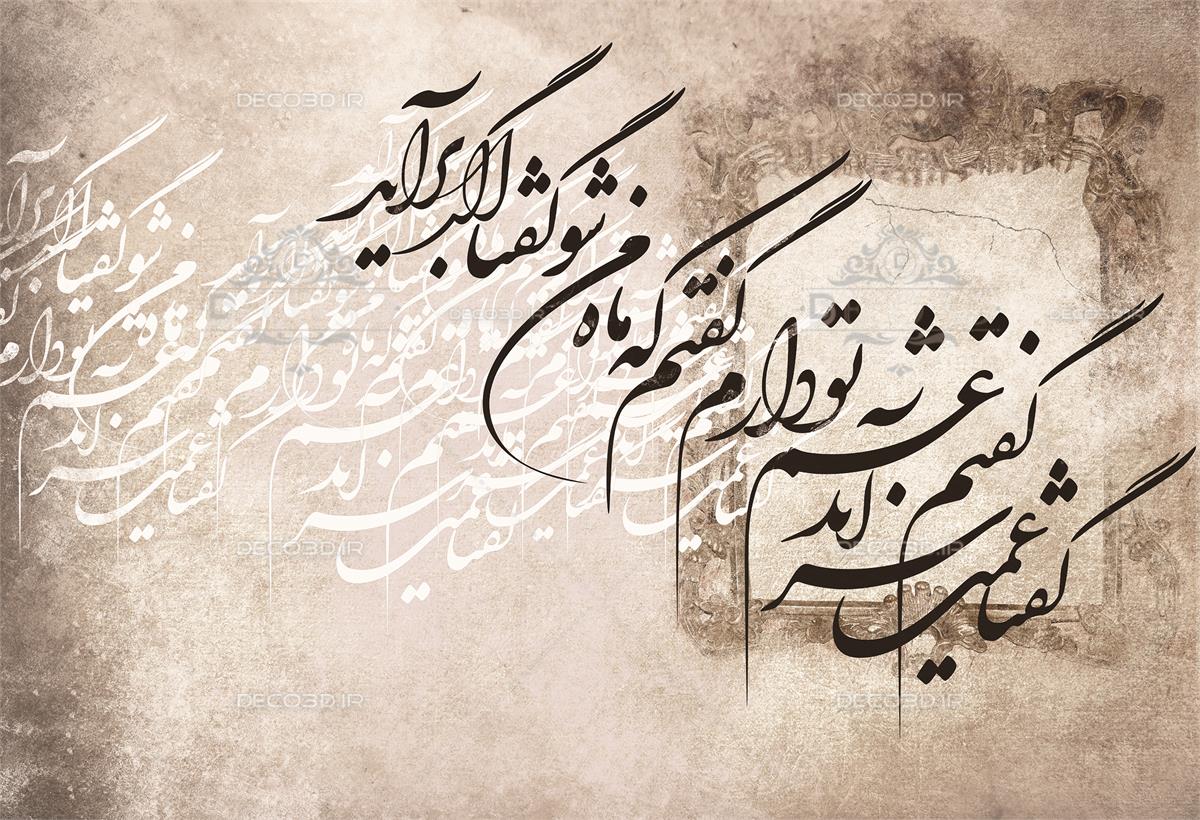 گفتم غم تو دارم گفتا غمت سر آید
گفتم که ماه من شو گفتا اگر برآید
DECO3D.IR
DECO3D.IR
DECO3D.IR
DECO3D.IR
DECO3D.IR
DECO3D.IR
DECO3D.IR